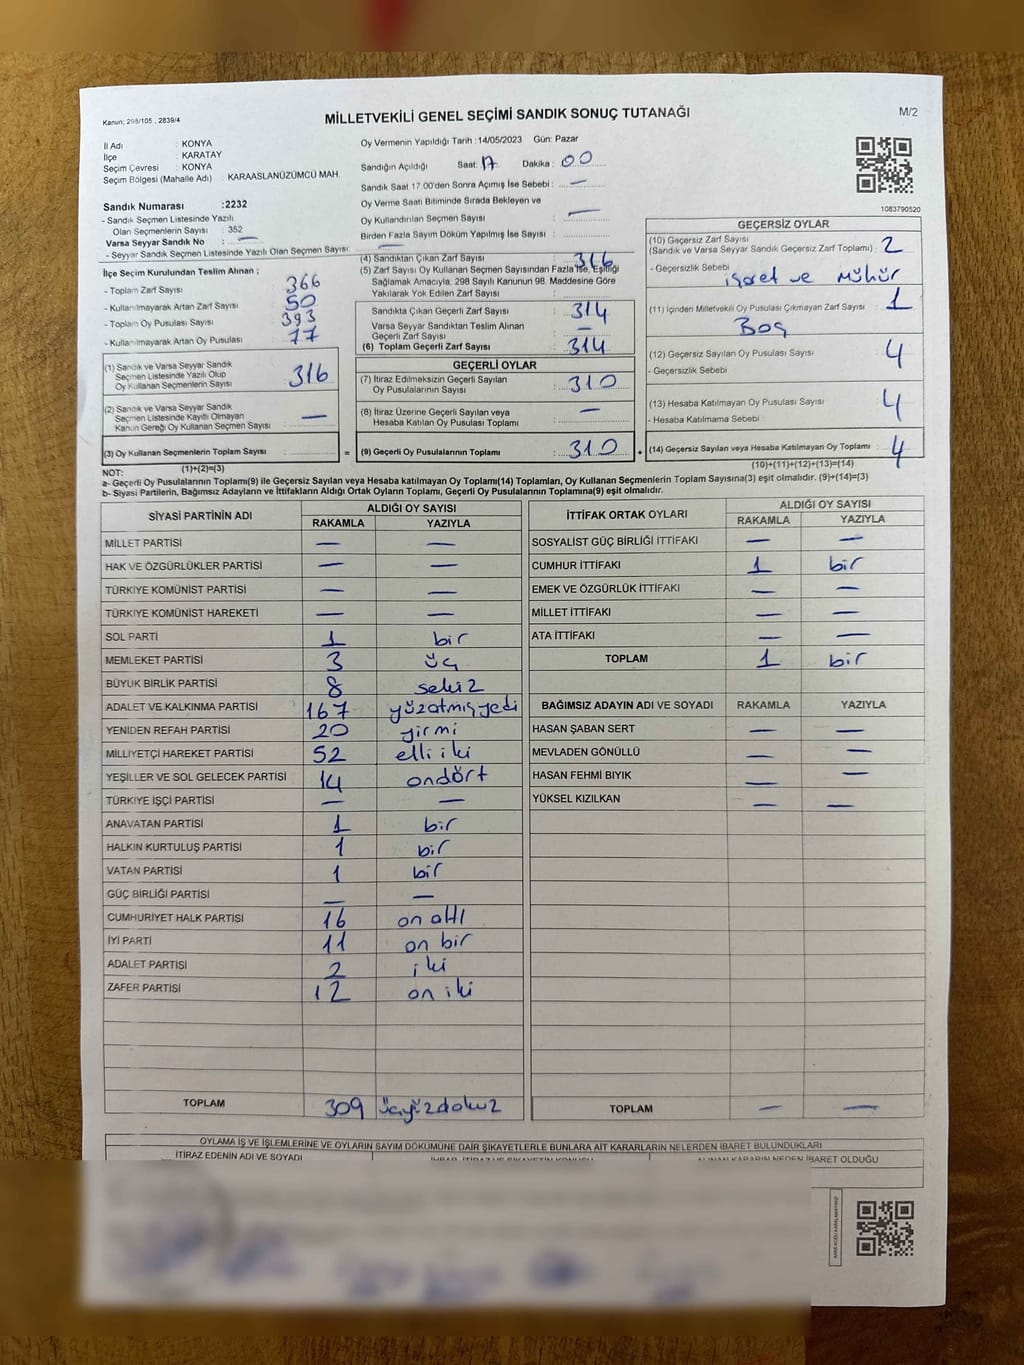 Kanun; 298/105 , 2839/4
MİLLETVEKİLİ GENEL SEÇİMİ SANDIK SONUÇ TUTANAĞI
M/2
İl Adı : KONYA
İlçe : KARATAY
Seçim Çevresi : KONYA
Seçim Bölgesi (Mahalle Adı) : KARAASLANÜZÜMCÜ MAH.
Sandık Numarası :2232
- Sandık Seçmen Listesinde Yazılı
Olan Seçmenlerin Sayısı : 352
Varsa Seyyar Sandık No : —
- Seyyar Seçmen Listesinde Yazılı Olan Seçmen Sayısı: —
İlçe Seçim Kurulundan Teslim Alınan ;
- Toplam Zarf Sayısı : 366
- Kullanılmayarak Artan Zarf Sayısı : 50
- Toplam Oy Pusulası Sayısı : 393
- Kullanılmayarak Artan Oy Pusulası : 77
(1) Sandık ve Varsa Seyyar Sandık
Seçmen Listesinde Yazılı Olup
Oy Kullanan Seçmenlerin Sayısı : 316
(2) Sandık ve Varsa Seyyar Sandık
Seçmen Listesinde Kayıtlı Olmayan
Kanun Gereği Oy Kullanan Seçmen Sayısı : —
(3) Oy Kullanan Seçmenlerin Toplam Sayısı :
(1)+(2)=(3)
Oy Vermenin Yapıldığı Tarih :14/05/2023 Gün: Pazar
Sandığın Açıldığı Saat: 17 Dakika : 00
Sandık Saat 17.00'den Sonra Açımış İse Sebebi : —
Oy Verme Saati Bitiminde Sırada Bekleyen ve
Oy Kullandırılan Seçmen Sayısı : —
Birden Fazla Sayım Döküm Yapılmış İse Sayısı :
(4) Sandıktan Çıkan Zarf Sayısı : 316
(5) Zarf Sayısı Oy Kullanan Seçmen Sayısından Fazla İse, Eşitliği
Sağlamak Amacıyla, 298 Sayılı Kanunun 98. Maddesine Göre
Yakılarak Yok Edilen Zarf Sayısı :
Sandıkta Çıkan Geçerli Zarf Sayısı : 314
Varsa Seyyar Sandıktan Teslim Alınan
Geçerli Zarf Sayısı : —
(6) Toplam Geçerli Zarf Sayısı : 314
GEÇERLİ OYLAR
(7) İtiraz Edilmeksizin Geçerli Sayılan
Oy Pusulalarının Sayısı : 310
(8) İtiraz Üzerine Geçerli Sayılan veya
Hesaba Katılan Oy Pusulası Toplamı : —
= (9) Geçerli Oy Pusulalarının Toplamı : 310 +
1083790520
GEÇERSİZ OYLAR
(10) Geçersiz Zarf Sayısı
(Sandık ve Varsa Seyyar Sandık Geçersiz Zarf Toplamı) : 2
- Geçersizlik Sebebi :
işaret ve Mühür
(11) İçinden Milletvekili Oy Pusulası Çıkmayan Zarf Sayısı : 1
Boş
(12) Geçersiz Sayılan Oy Pusulası Sayısı : 4
- Geçersizlik Sebebi
(13) Hesaba Katılmayan Oy Pusulası Sayısı : 4
- Hesaba Katılmama Sebebi :
(14) Geçersiz Sayılan veya Hesaba Katılmayan Oy Toplamı : 4
(10)+(11)+(12)+(13)=(14)
NOT:
a- Geçerli Oy Pusulalarının Toplamı(9) ile Geçersiz Sayılan veya Hesaba katılmayan Oy Toplamı(14) Toplamları, Oy Kullanan Seçmenlerin Toplam Sayısına(3) eşit olmalıdır. (9)+(14)=(3)
b- Siyasi Partilerin, Bağımsız Adayların ve İttifakların Aldığı Ortak Oyların Toplamı, Geçerli Oy Pusulalarının Toplamına(9) eşit olmalıdır.
SİYASİ PARTİNİN ADI ALDIĞI OY SAYISI
RAKAMLA YAZIYLA
MİLLET PARTİSİ — —
HAK VE ÖZGÜRLÜKLER PARTİSİ — —
TÜRKİYE KOMÜNİST PARTİSİ — —
TÜRKİYE KOMÜNİST HAREKETİ — —
SOL PARTİ 1 bir
MEMLEKET PARTİSİ 3 üç
BÜYÜK BİRLİK PARTİSİ 8 sekiz
ADALET VE KALKINMA PARTİSİ 167 yüzatmışyedi
YENİDEN REFAH PARTİSİ 20 yirmi
MİLLİYETÇİ HAREKET PARTİSİ 52 elli iki
YEŞİLLER VE SOL GELECEK PARTİSİ 14 ondört
TÜRKİYE İŞÇİ PARTİSİ — —
ANAVATAN PARTİSİ 1 bir
HALKIN KURTULUŞ PARTİSİ 1 bir
VATAN PARTİSİ 1 bir
GÜÇ BİRLİĞİ PARTİSİ — —
CUMHURİYET HALK PARTİSİ 16 on altı
İYİ PARTİ 11 on bir
ADALET PARTİSİ 2 iki
ZAFER PARTİSİ 12 on iki
TOPLAM 309 üçyüzdokuz
İTTİFAK ORTAK OYLARI ALDIĞI OY SAYISI
RAKAMLA YAZIYLA
SOSYALİST GÜÇ BİRLİĞİ İTTİFAKI — —
CUMHUR İTTİFAKI 1 bir
EMEK VE ÖZGÜRLÜK İTTİFAKI — —
MİLLET İTTİFAKI — —
ATA İTTİFAKI — —
TOPLAM 1 bir
BAĞIMSIZ ADAYIN ADI VE SOYADI RAKAMLA YAZIYLA
HASAN ŞABAN SERT — —
MEVLADEN GÖNÜLLÜ — —
HASAN FEHMİ BIYIK — —
YÜKSEL KIZILKAN — —
TOPLAM — —
OYLAMA İŞ VE İŞLEMLERİNE VE OYLARIN SAYIM DÖKÜMÜNE DAİR ŞİKAYETLERLE BUNLARA AİT KARARLARIN NELERDEN İBARET BULUNDUKLARI
İTİRAZ EDENİN ADI VE SOYADI
ALINAN KARARIN NEDEN İBARET OLDUĞU